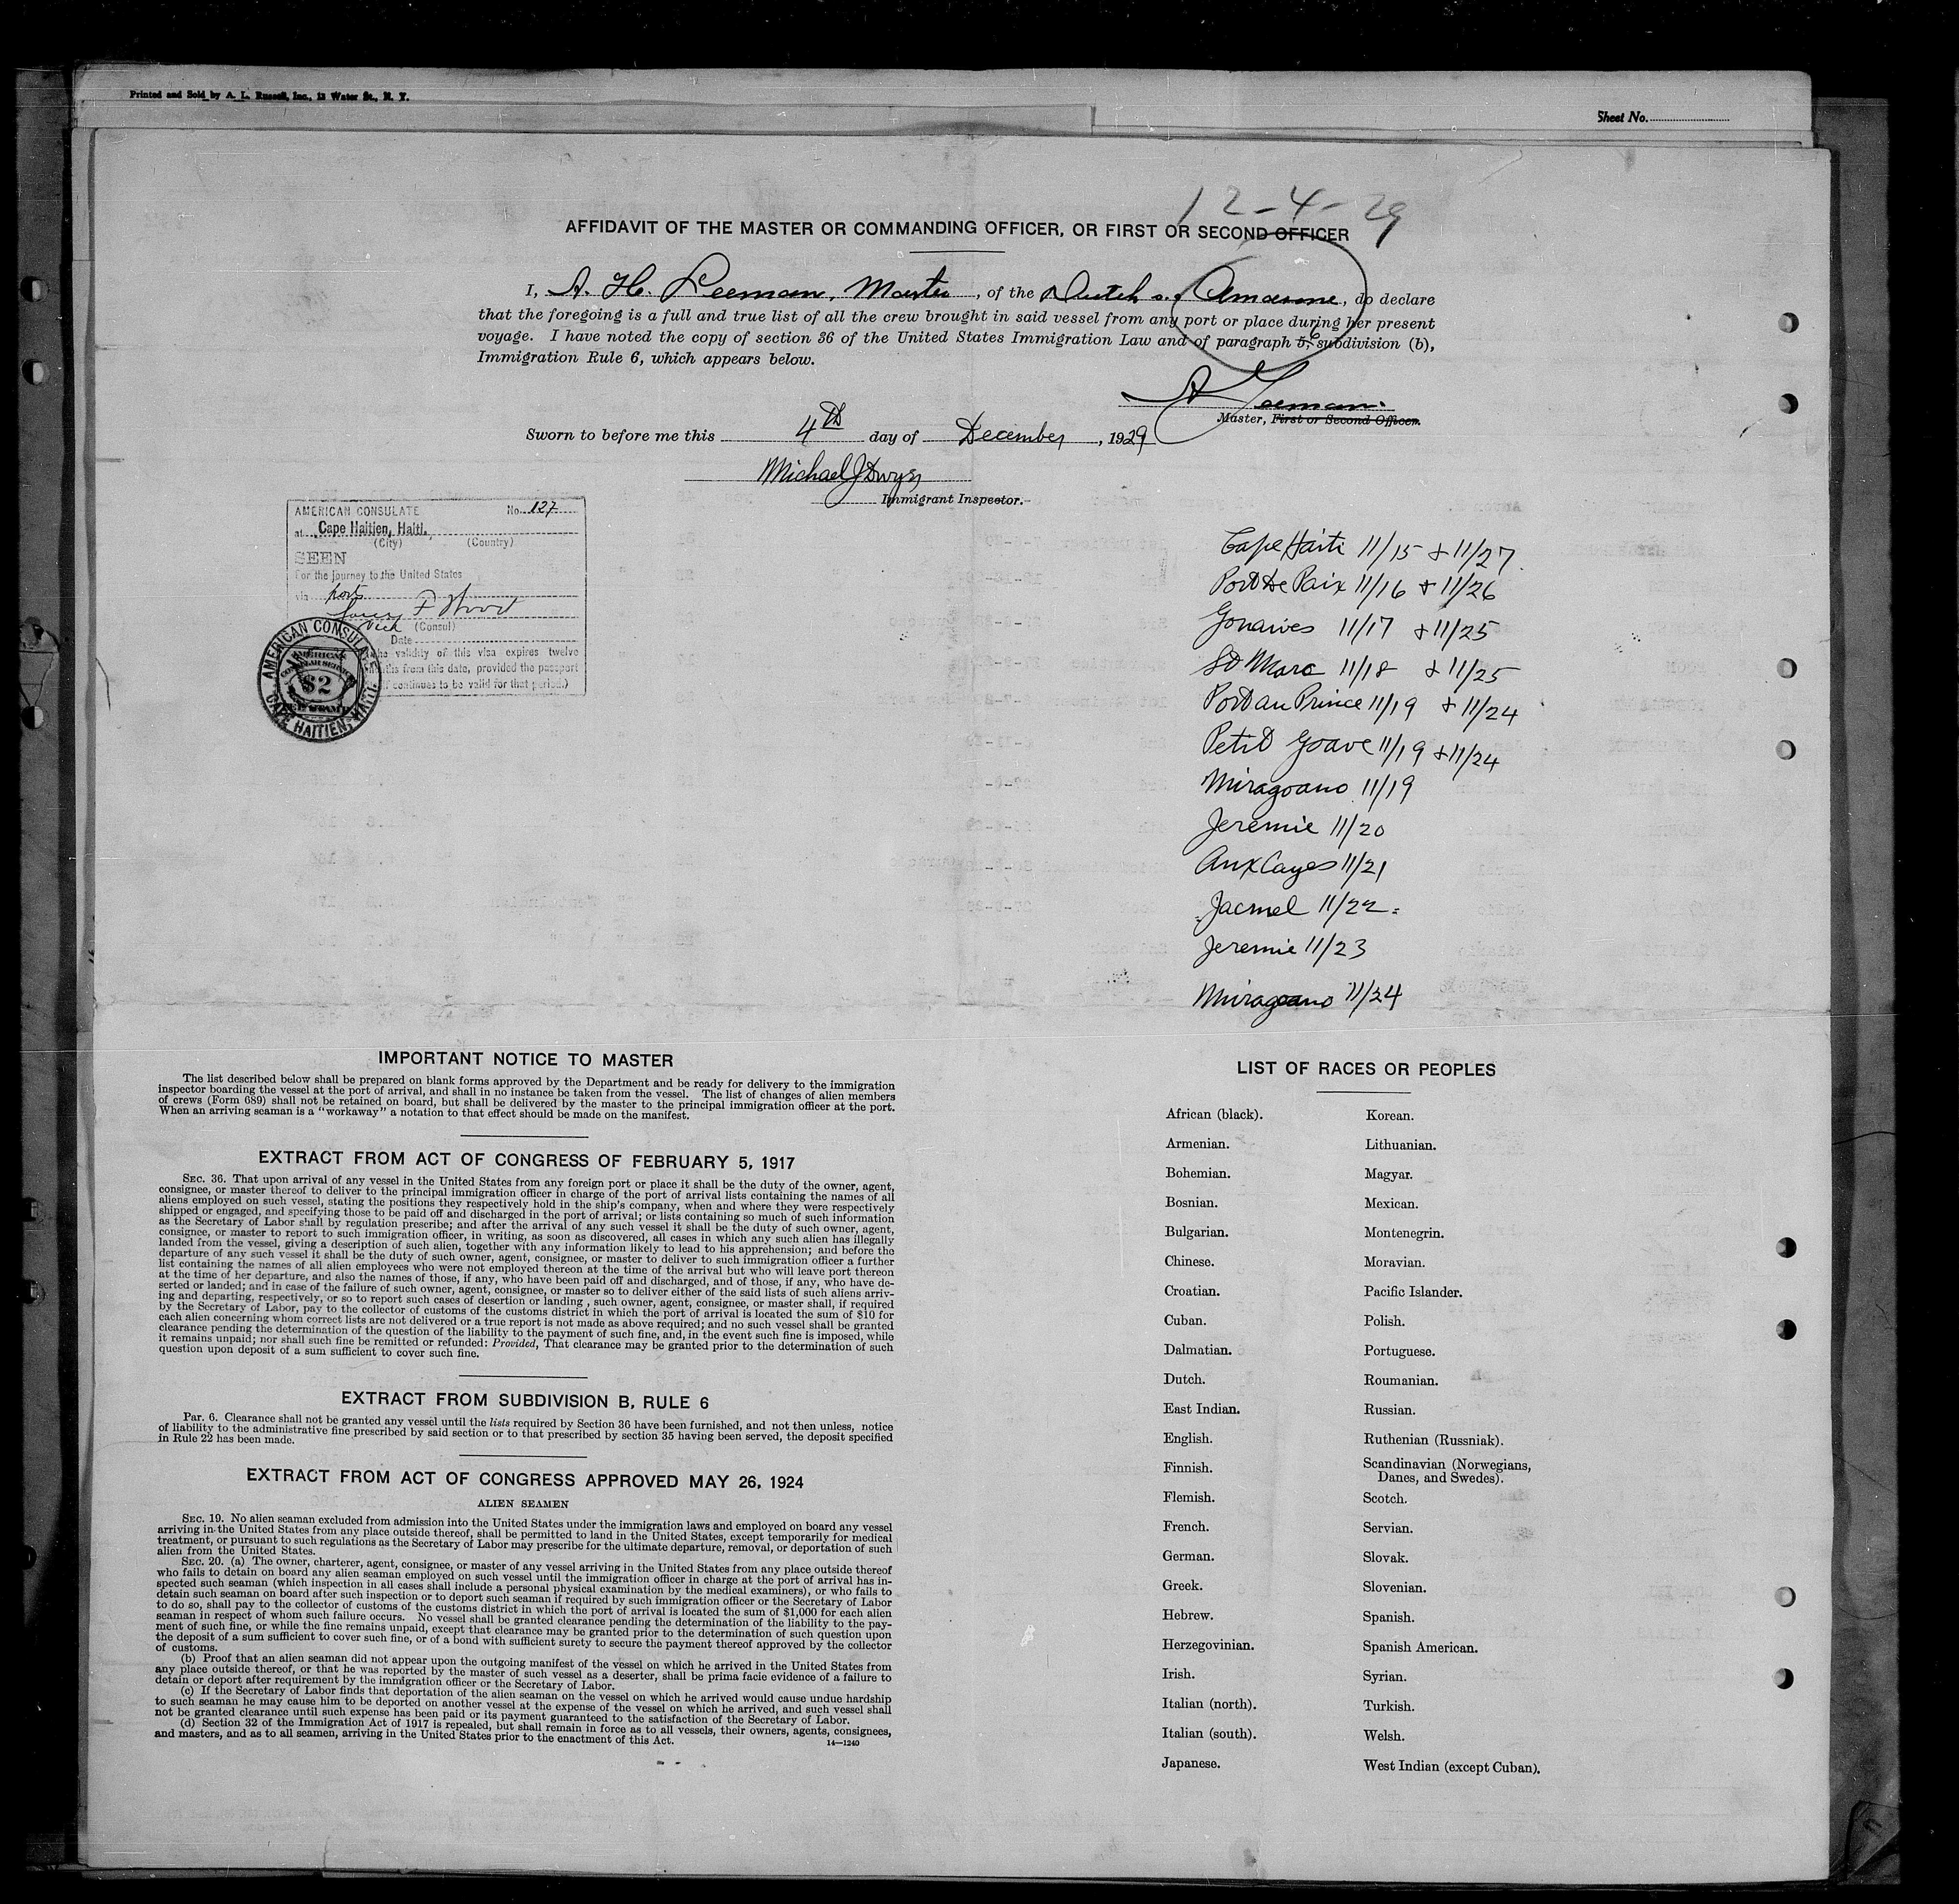 Printed and Sold by A. L. Russell, Inc., 12 Water St., N. Y.
Sheet No.
12-4-29
AFFIDAVIT OF THE MASTER OR COMMANDING OFFICER, OR FIRST OR SECOND OFFICER
I, A. H. Leeman, Master, of the Dutch s. , do declare
that the foregoing is a full and true list of all the crew brought in said vessel from any port or place during her present
voyage. I have noted the copy of section 36 of the United States Immigration Law and of paragraph 5, 6 subdivision (b),
Immigration Rule 6, which appears below.
A Leeman.
Master, First or Second Officer.
Sworn to before me this 4th day of December, 1929
Michael J Dwyer
Immigrant Inspector.
AMERICAN CONSULATE No. 127
at Cape Haitien, Haiti.
(City) (Country)
SEEN
For the journey to the United States
via ports
F Wood
Vice (Consul)
Date
The validity of this visa expires twelve
months from this date, provided the passport
continues to be valid for that period.)
AMERICAN CONSULATE
CAPE HAITIEN, HAITI
AMERICAN
CONSULAR SERVICE
$2
FEE STAMP
Cape Haiti 11/15 & 11/27
Port De Paix 11/16 & 11/26
Gonaives 11/17 & 11/25
St Marc 11/18 & 11/25
Port au Prince 11/19 & 11/24
Petit Goave 11/19 & 11/24
Miragoano 11/19
Jeremie 11/20
Aux Cayes 11/21
Jacmel 11/22
Jeremie 11/23
Miragoano 11/24
IMPORTANT NOTICE TO MASTER
The list described below shall be prepared on blank forms approved by the Department and be ready for delivery to the immigration
inspector boarding the vessel at the port of arrival, and shall in no instance be taken from the vessel. The list of changes of alien members
of crews (Form 689) shall not be retained on board, but shall be delivered by the master to the principal immigration officer at the port.
When an arriving seaman is a "workaway" a notation to that effect should be made on the manifest.
EXTRACT FROM ACT OF CONGRESS OF FEBRUARY 5, 1917
SEC. 36. That upon arrival of any vessel in the United States from any foreign port or place it shall be the duty of the owner, agent,
consignee, or master thereof to deliver to the principal immigration officer in charge of the port of arrival lists containing the names of all
aliens employed on such vessel, stating the positions they respectively hold in the ship's company, when and where they were respectively
shipped or engaged, and specifying those to be paid off and discharged in the port of arrival; or lists containing so much of such information
as the Secretary of Labor shall by regulation prescribe; and after the arrival of any such vessel it shall be the duty of such owner, agent,
consignee, or master to report to such immigration officer, in writing, as soon as discovered, all cases in which any such alien has illegally
landed from the vessel, giving a description of such alien, together with any information likely to lead to his apprehension; and before the
departure of any such vessel it shall be the duty of such owner, agent, consignee, or master to deliver to such immigration officer a further
list containing the names of all alien employees who were not employed thereon at the time of the arrival but who will leave port thereon
at the time of her departure, and also the names of those, if any, who have been paid off and discharged, and of those, if any, who have de-
serted or landed; and in case of the failure of such owner, agent, consignee, or master so to deliver either of the said lists of such aliens arriv-
ing and departing, respectively, or so to report such cases of desertion or landing , such owner, agent, consignee, or master shall, if required
by the Secretary of Labor, pay to the collector of customs of the customs district in which the port of arrival is located the sum of $10 for
each alien concerning whom correct lists are not delivered or a true report is not made as above required; and no such vessel shall be granted
clearance pending the determination of the question of the liability to the payment of such fine, and, in the event such fine is imposed, while
it remains unpaid; nor shall such fine be remitted or refunded: Provided, That clearance may be granted prior to the determination of such
question upon deposit of a sum sufficient to cover such fine.
EXTRACT FROM SUBDIVISION B, RULE 6
Par. 6. Clearance shall not be granted any vessel until the lists required by Section 36 have been furnished, and not then unless, notice
of liability to the administrative fine prescribed by said section or to that prescribed by section 35 having been served, the deposit specified
in Rule 22 has been made.
EXTRACT FROM ACT OF CONGRESS APPROVED MAY 26, 1924
ALIEN SEAMEN
SEC. 19. No alien seaman excluded from admission into the United States under the immigration laws and employed on board any vessel
arriving in the United States from any place outside thereof, shall be permitted to land in the United States, except temporarily for medical
treatment, or pursuant to such regulations as the Secretary of Labor may prescribe for the ultimate departure, removal, or deportation of such
alien from the United States.
SEC. 20. (a) The owner, charterer, agent, consignee, or master of any vessel arriving in the United States from any place outside thereof
who fails to detain on board any alien seaman employed on such vessel until the immigration officer in charge at the port of arrival has in-
spected such seaman (which inspection in all cases shall include a personal physical examination by the medical examiners), or who fails to
detain such seaman on board after such inspection or to deport such seaman if required by such immigration officer or the Secretary of Labor
to do so, shall pay to the collector of customs of the customs district in which the port of arrival is located the sum of $1,000 for each alien
seaman in respect of whom such failure occurs. No vessel shall be granted clearance pending the determination of the liability to the pay-
ment of such fine, or while the fine remains unpaid, except that clearance may be granted prior to the determination of such question upon
the deposit of a sum sufficient to cover such fine, or of a bond with sufficient surety to secure the payment thereof approved by the collector
of customs.
(b) Proof that an alien seaman did not appear upon the outgoing manifest of the vessel on which he arrived in the United States from
any place outside thereof, or that he was reported by the master of such vessel as a deserter, shall be prima facie evidence of a failure to
detain or deport after requirement by the immigration officer or the Secretary of Labor.
(c) If the Secretary of Labor finds that deportation of the alien seaman on the vessel on which he arrived would cause undue hardship
to such seaman he may cause him to be deported on another vessel at the expense of the vessel on which he arrived, and such vessel shall
not be granted clearance until such expense has been paid or its payment guaranteed to the satisfaction of the Secretary of Labor.
(d) Section 32 of the Immigration Act of 1917 is repealed, but shall remain in force as to all vessels, their owners, agents, consignees,
and masters, and as to all seamen, arriving in the United States prior to the enactment of this Act.
14—1240
LIST OF RACES OR PEOPLES
African (black). Korean.
Armenian. Lithuanian.
Bohemian. Magyar.
Bosnian. Mexican.
Bulgarian. Montenegrin.
Chinese. Moravian.
Croatian. Pacific Islander.
Cuban. Polish.
Dalmatian. Portuguese.
Dutch. Roumanian.
East Indian. Russian.
English. Ruthenian (Russniak).
Finnish. Scandinavian (Norwegians,
Danes, and Swedes).
Flemish. Scotch.
French. Servian.
German. Slovak.
Greek. Slovenian.
Hebrew. Spanish.
Herzegovinian. Spanish American.
Irish. Syrian.
Italian (north). Turkish.
Italian (south). Welsh.
Japanese. West Indian (except Cuban).